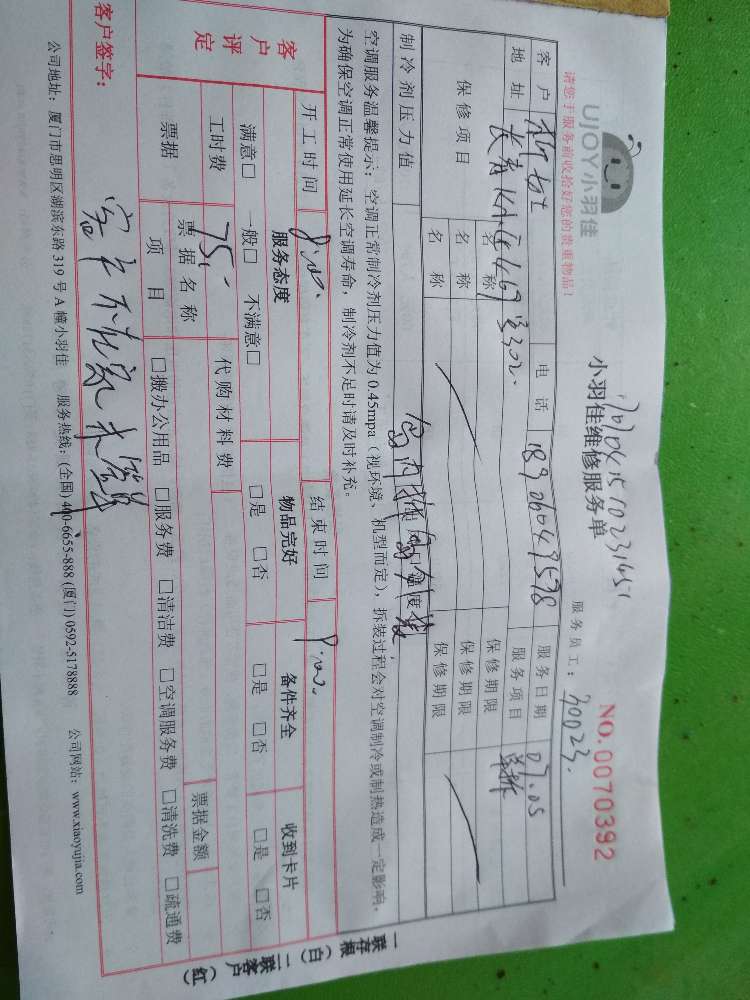 UJOY小羽佳
请您于服务前收拾好您的贵重物品!
小羽佳维修服务单
NO.0070392
服务员工: 30023
客户 电话 服务日期 07.05
地址 服务项目
保修项目 名称 保修期限
名称 保修期限
名称 保修期限
制冷剂压力值
空调服务温馨提示: 空调正常制冷剂压力值为0.45mpa (视环境、机型而定), 拆装过程会对空调制冷或制热造成一定影响,
为确保空调正常使用延长空调寿命, 制冷剂不足时请及时补充。
开工时间 结束时间
客户评定 服务态度 物品完好 备件齐全 收到卡片
满意□ 一般□ 不满意□ □是 □否 □是 □否 □是 □否
工时费 75 代购材料费
票据 票据名称 票据金额
项目 □搬办公用品 □服务费 □清洁费 □空调服务费 □清洗费 □疏通费
客户签字: 客户不在家
公司地址: 厦门市思明区湖滨东路319号A幢小羽佳 服务热线: (全国) 400-6655-888 (厦门) 0592-5178888 公司网站: www.xiaoyujia.com
一联存根 (白) 二联客户 (红)